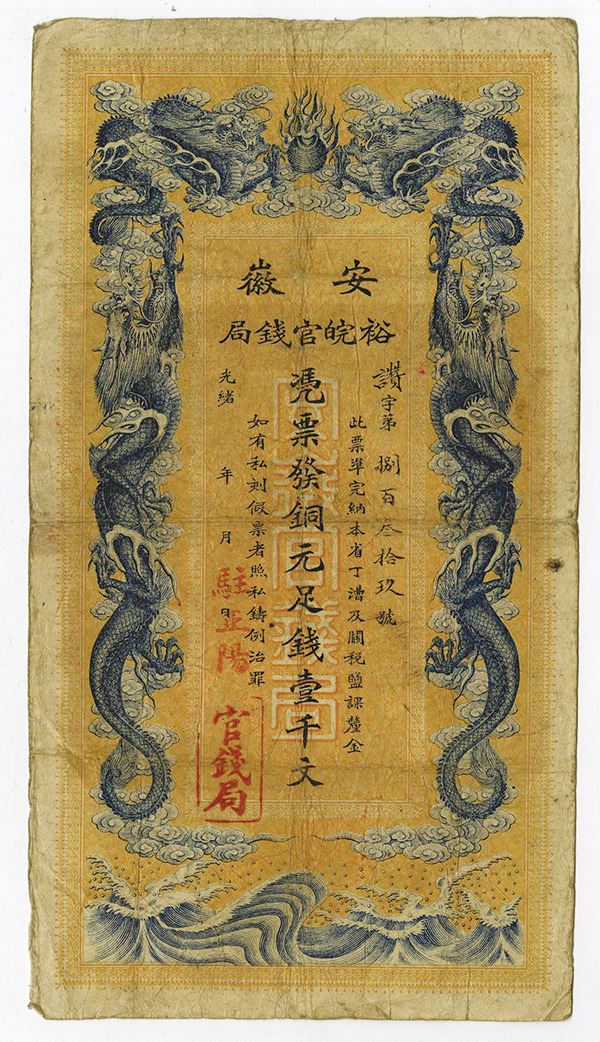 安徽
裕皖官錢局
讚字第捌百叁拾玖號
此票準完納本省丁漕及關稅鹽課釐金
憑票發銅元足錢壹千文
如有私刻假票者照私鑄例治罪
光緒 年 月 日
駐正陽
官錢局